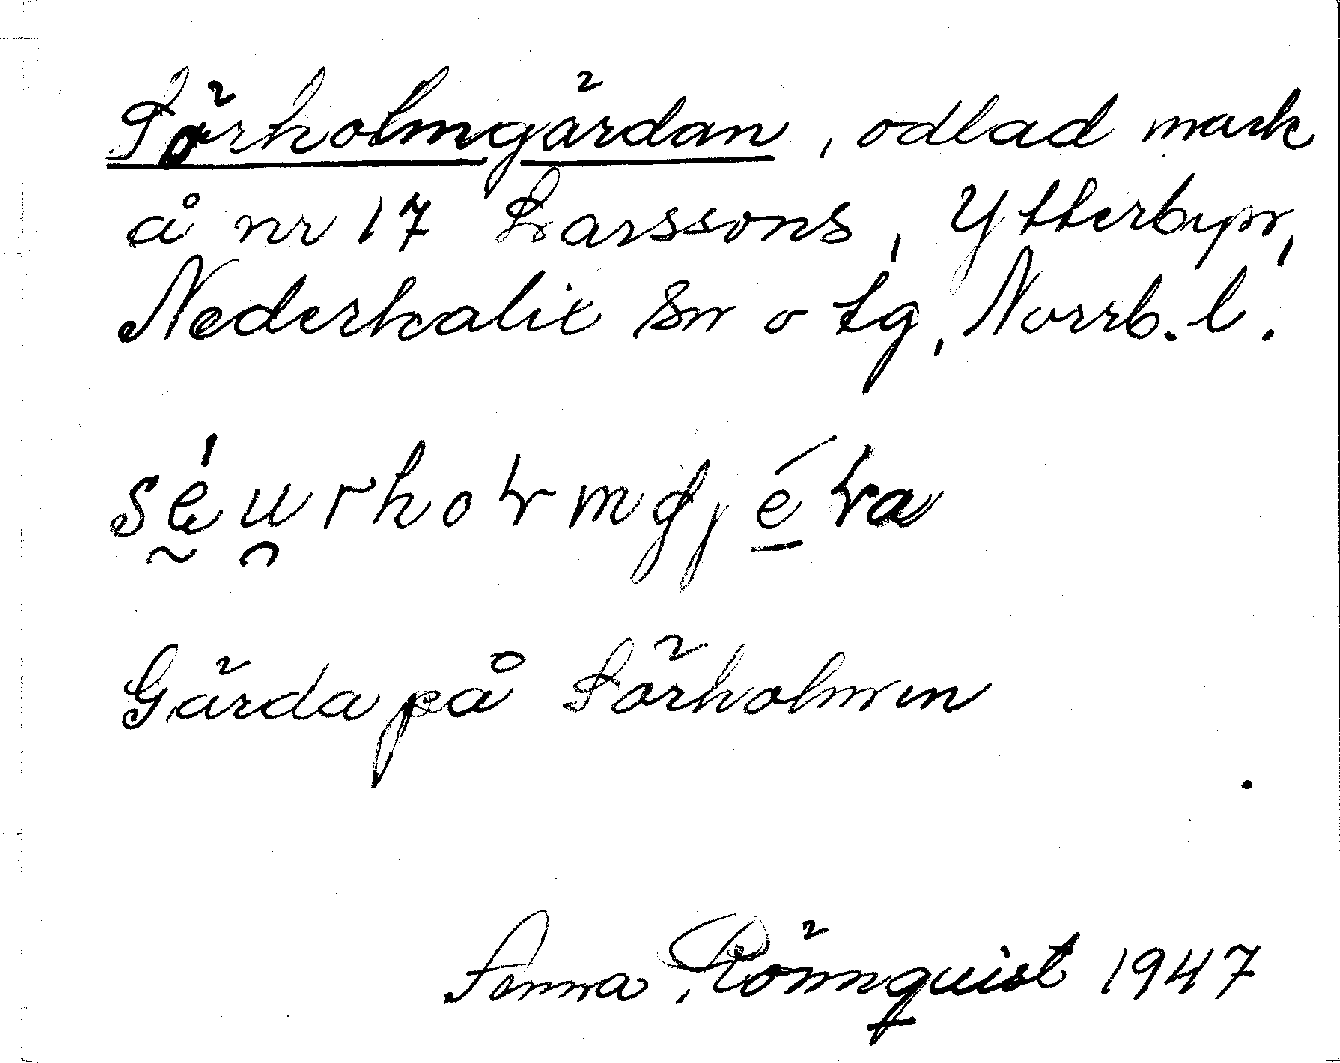 Sörholmgärdan, odlad mark
å nr 17 Larssons, Ytterbyn,
Nederkalix sn o tg, Norrb. l.
Gärda på Sörholmen
Anna Rönnquist 1947